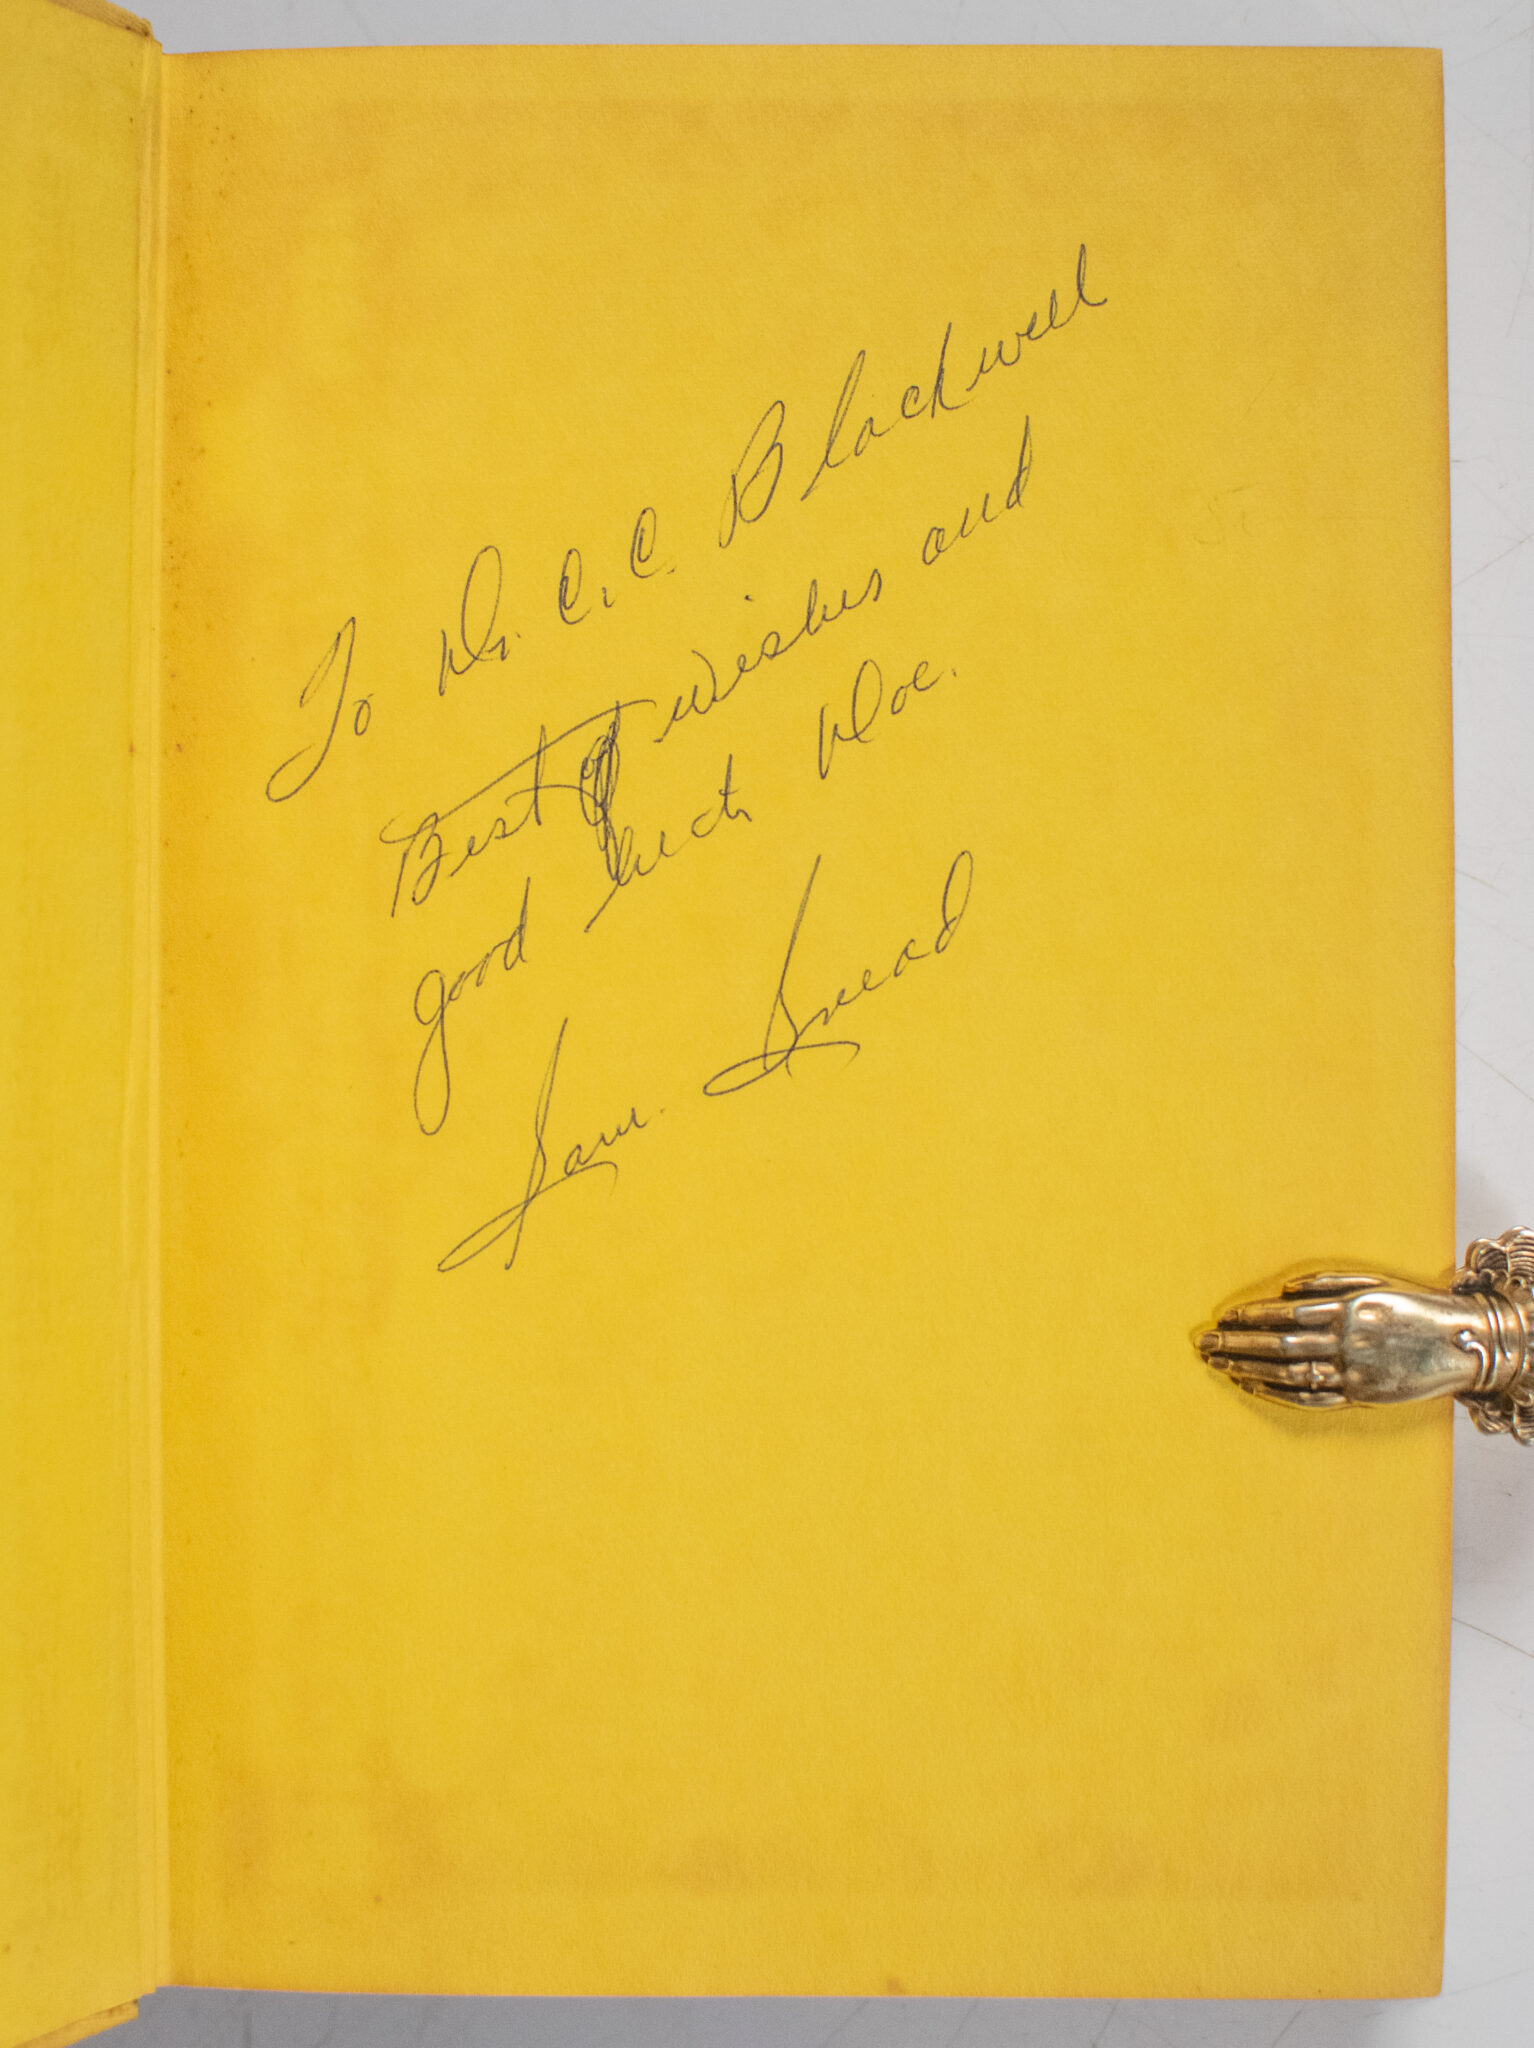 To Dr. C. C. Blackwell
Best of wishes and
good luck Doc.
Sam Snead